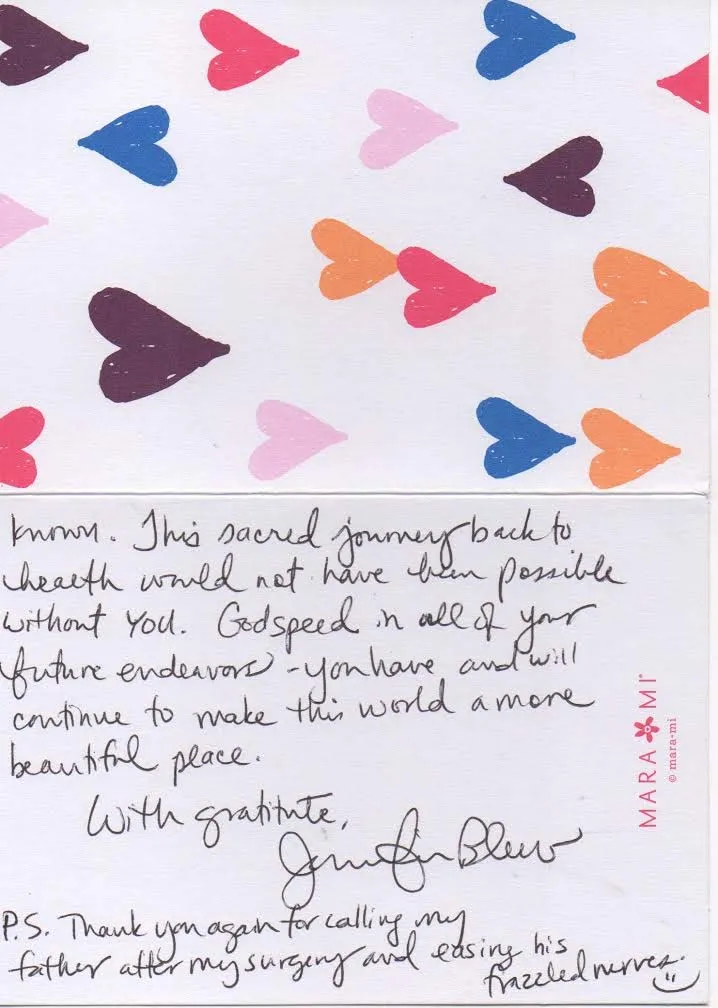 known. This sacred journey back to
health would not have been possible
without you. Godspeed in all of your
future endeavors - you have and will
continue to make this world a more
beautiful place.
With gratitute,
Jennifer Blew
P.S. Thank you again for calling my
father after my surgery and easing his
frazzled nerves.
MARA MI
© mara-mi